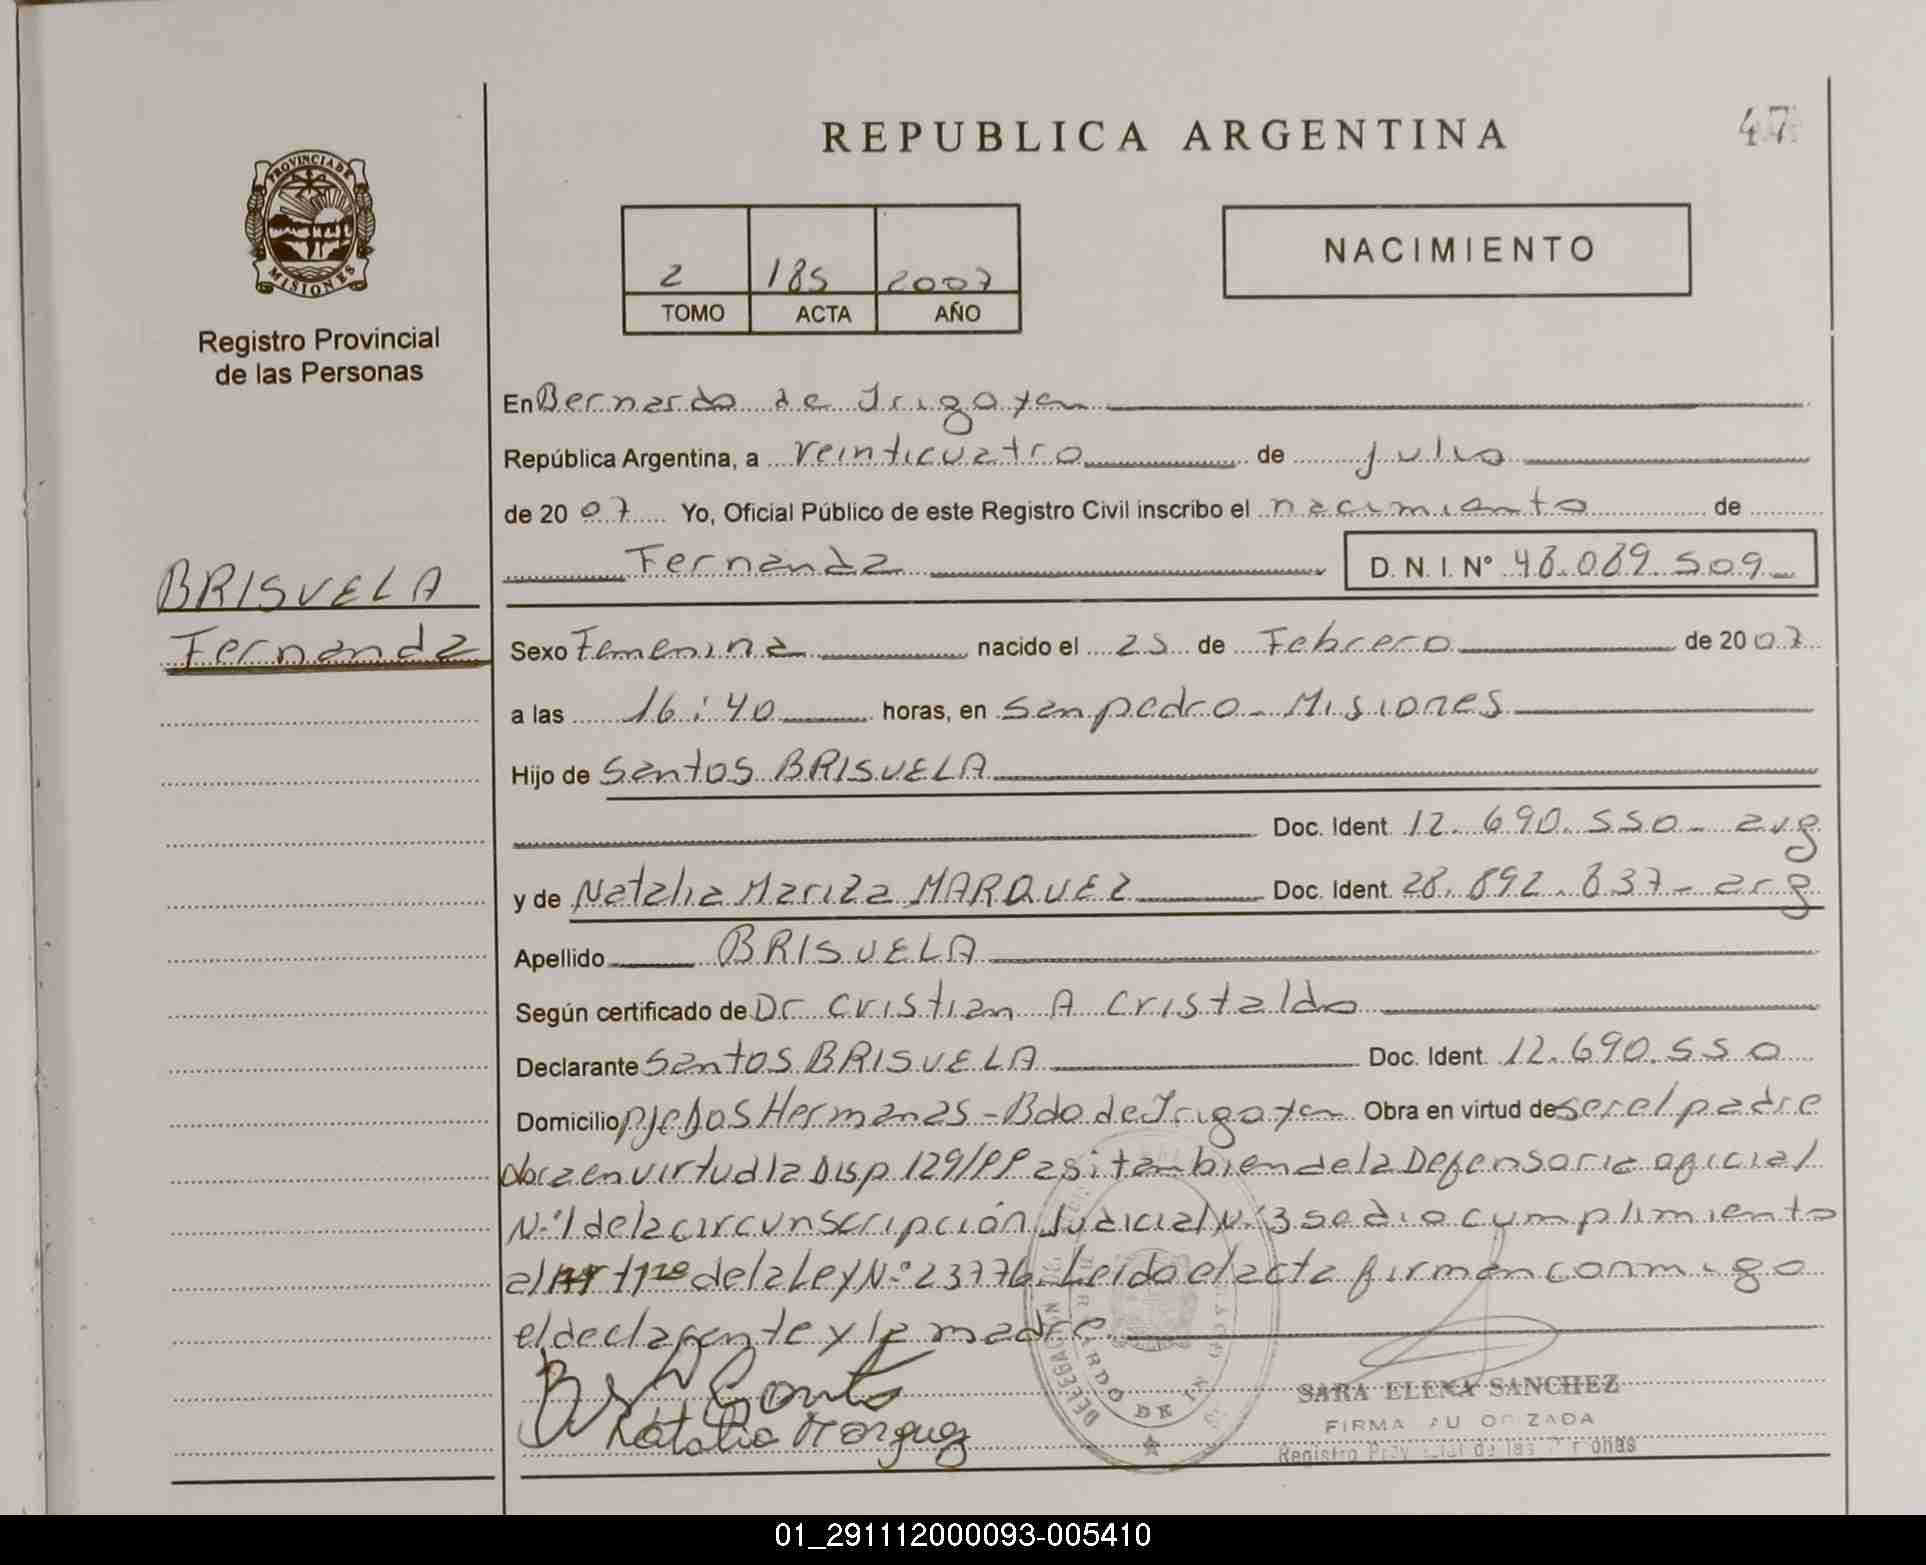 REPUBLICA ARGENTINA
47
PROVINCIA DE MISIONES
Registro Provincial
de las Personas
2 185 2007
TOMO ACTA AÑO
NACIMIENTO
En Bernardo de Irigoyen
República Argentina, a veinticuatro de julio
de 2007 Yo, Oficial Público de este Registro Civil inscribo el nacimiento de
Fernanda D.N.I. Nº 48.089.509
BRISUELA
Fernanda
Sexo Femenina nacido el 25 de Febrero de 2007
a las 16:40 horas, en San pedro - Misiones
Hijo de Santos BRISUELA
Doc. Ident. 12.690.550 - arg
y de Natalia Mariza MARQUEZ Doc. Ident. 28.892.837 - arg
Apellido BRISUELA
Según certificado de Dr Cristian A Cristaldo
Declarante Santos BRISUELA Doc. Ident. 12.690.550
Domicilio Pje Dos Hermanas - Bdo de Irigoyen Obra en virtud de ser el padre
obra en virtud la Disp 129/PP asi tambien de la Defensoria oficial
N.º 1 de la circunscripción Judicial N.º 3 se dio cumplimiento
al Art 1ro de la Ley N.º 23776. Leido el acta firman conmigo
el declarente y la madre.
Natalia Marquez
SARA ELENA SANCHEZ
FIRMA AUTORIZADA
Registro Provincial de las Personas
01_291112000093-005410